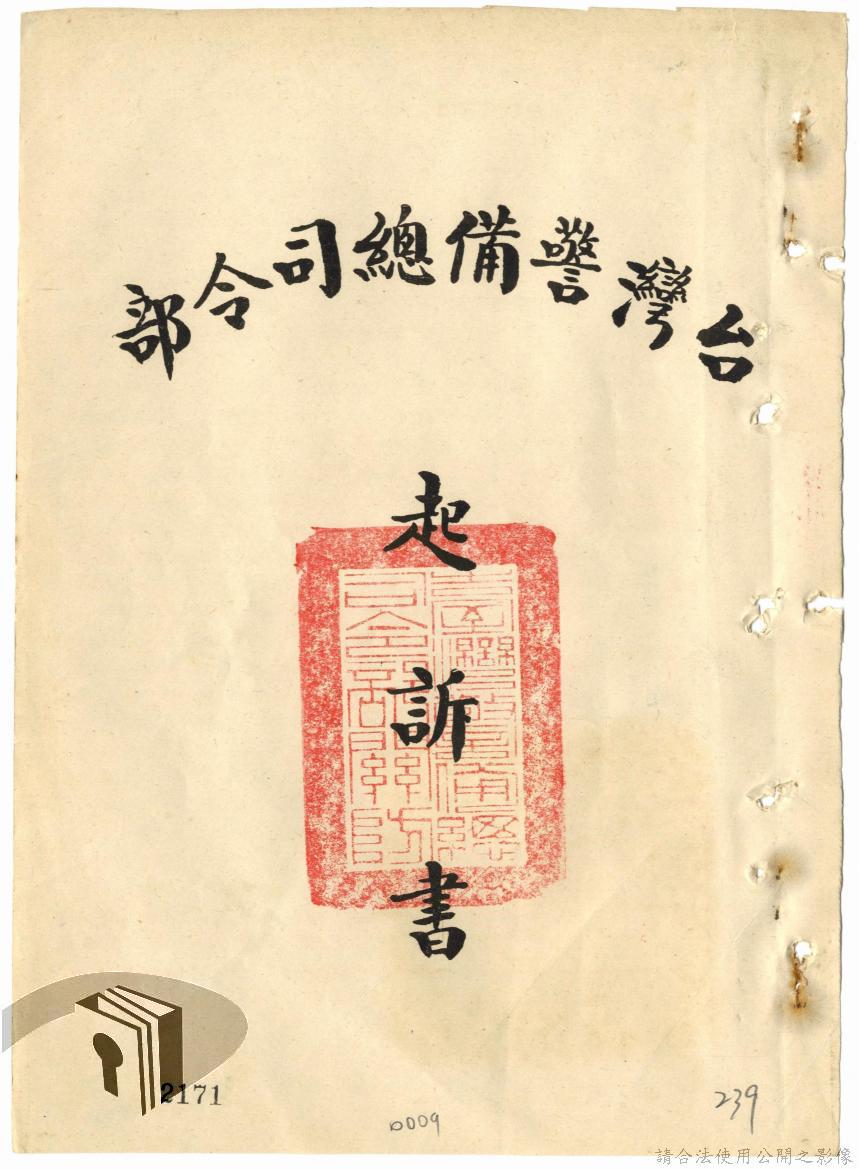 台灣警備總司令部
起訴書
2171
0009
239
請合法使用公開之影像